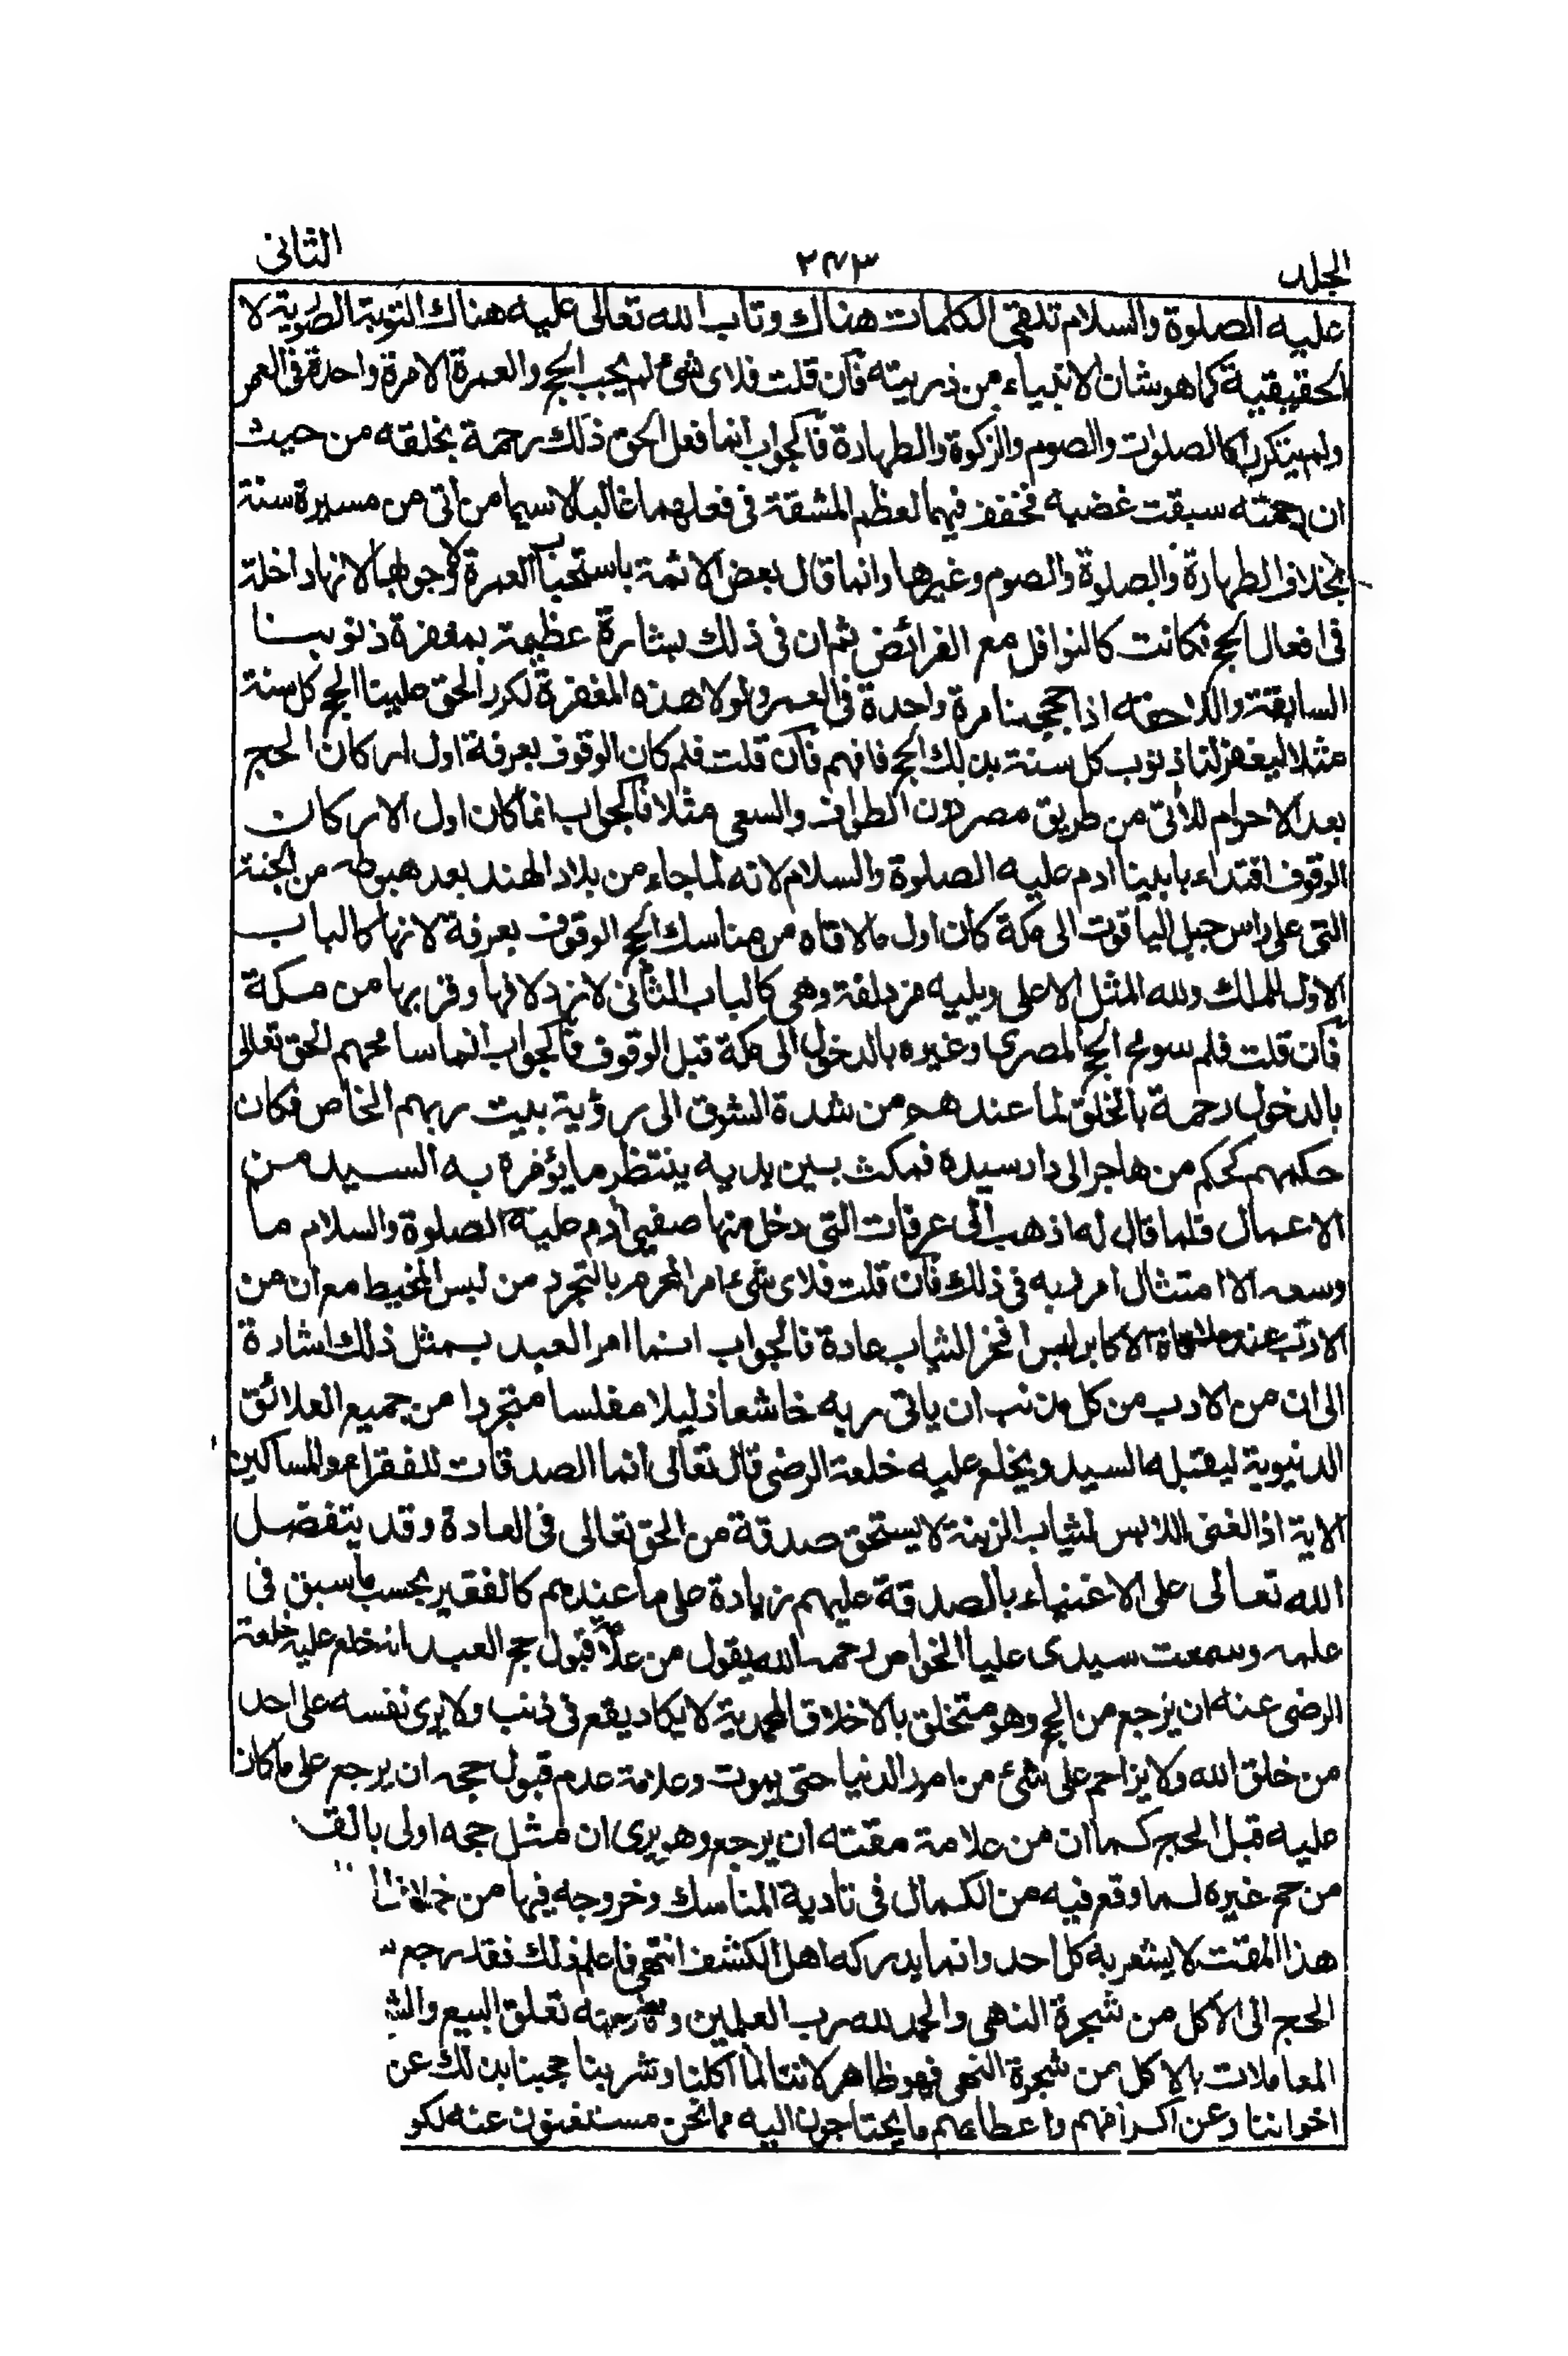 الجلد ٢٤٣ الثانى
عليه الصلوة والسلام تلقى الكلمات هناك وتاب الله تعالى عليه هناك التوبة الصورية لا
الحقيقية كما هو شان الانبياء من ذريته فان قلت فلاى شئ لم يجب الحج والعمرة الا مرة واحدة فى العمر
ولم يتكررا كالصلوات والصوم والزكوة والطهارة فالجواب انما فعل الحق ذلك رحمة بخلقه من حيث
ان رحمته سبقت غضبه فخفف فيهما لعظم المشقة فى فعلهما غالبا لا سيما من اتى من مسيرة سنة
بخلاف الطهارة والصلوة والصوم وغيرها وانما قال بعض الائمة باستحباب العمرة لا وجوبها لانها داخلة
فى افعال الحج فكانت كالنوافل مع الفرائض ثم ان فى ذلك بشارة عظيمة بمغفرة ذنوبنا
السابقة واللاحقة اذا حججنا مرة واحدة فى العمر ولولا هذه المغفرة لكرر الحق علينا الحج كل سنة
مثلا ليغفر لنا ذنوب كل سنة بذلك الحج فافهم فان قلت فلم كان الوقوف بعرفة اول اركان الحج
بعد الاحرام للآتى من طريق مصر دون الطواف والسعى مثلا فالجواب انما كان اول الاركان
الوقوف اقتداء بابينا ادم عليه الصلوة والسلام لانه لما جاء من بلاد الهند بعد هبوطه من الجنة
التى على راس جبل الياقوت الى مكة كان اول ما لاقاه من مناسك الحج الوقوف بعرفة لانها كالباب
الاول للملك ولله المثل الاعلى ويليه مزدلفة وهى كالباب الثانى لازدلافها وقربها من مكة
فان قلت فلم سومح الحج المصرى وغيره بالدخول الى مكة قبل الوقوف فالجواب انما سامحهم الحق تعالى
بالدخول رحمة بالخلق لما عندهم من شدة الشوق الى رؤية بيت ربهم الخاص فكان
حكمهم كحكم من هاجر الى دار سيده فمكث بين يديه ينتظر ما يؤمره به السيد من
الاعمال فلما قال له اذهب الى عرفات التى دخل منها صفيى ادم عليه الصلوة والسلام ما
وسعه الا امتثال امر ربه فى ذلك فان قلت فلاى شئ امر المحرم بالتجرد من لبس المخيط مع ان من
الادب عند ملاقاة الاكابر لبس افخر الثياب عادة فالجواب انما امر العبد بمثل ذلك اشارة
الى ان من الادب من كل مذنب ان ياتى ربه خاشعا ذليلا مفلسا متجردا من جميع العلائق
الدنيوية ليقبله السيد ويخلع عليه خلعة الرضى قال تعالى انما الصدقات للفقراء والمساكين
الاية اذ الغنى اللابس لثياب الزينة لا يستحق صدقة من الحق تعالى فى العادة وقد يتفضل
الله تعالى على الاغنياء بالصدقة عليهم زيادة على ما عندهم كالفقير بحسب ما سبق فى
علمه وسمعت سيدى عليا الخواص رحمه الله يقول من علامة قبول حج العبد انه خلع عليه خلعة
الرضى عنه ان يرجع من الحج وهو متخلق بالاخلاق المحمدية لا يكاد يقع فى ذنب ولا يرى نفسه على احد
من خلق الله ولا يزاحم على شئ من امور الدنيا حتى يموت وعلامة عدم قبول حجه ان يرجع على ما كان
عليه قبل الحج كما ان من علامة مقته ان يرجع وهو يرى ان مثل حجه اولى بالق
من حج غيره لما وقع فيه من الكمال فى تادية المناسك وخروجه فيها من
هذا المقت لا يشعر به كل احد وانما يدركه اهل الكشف انتهى فاعلم ذلك فقد رجع
الحج الى الاكل من شجرة النهى والحمد لله رب العلمين و تعلق البيع والش
المعاملات بالاكل من شجرة النهى فهو ظاهر لاننا لما اكلنا وشربنا حجبنا بذلك عن
اخواننا وعن اكرامهم واعطائهم ما يحتاجون اليه مما نحن مستغنون عنه لكو